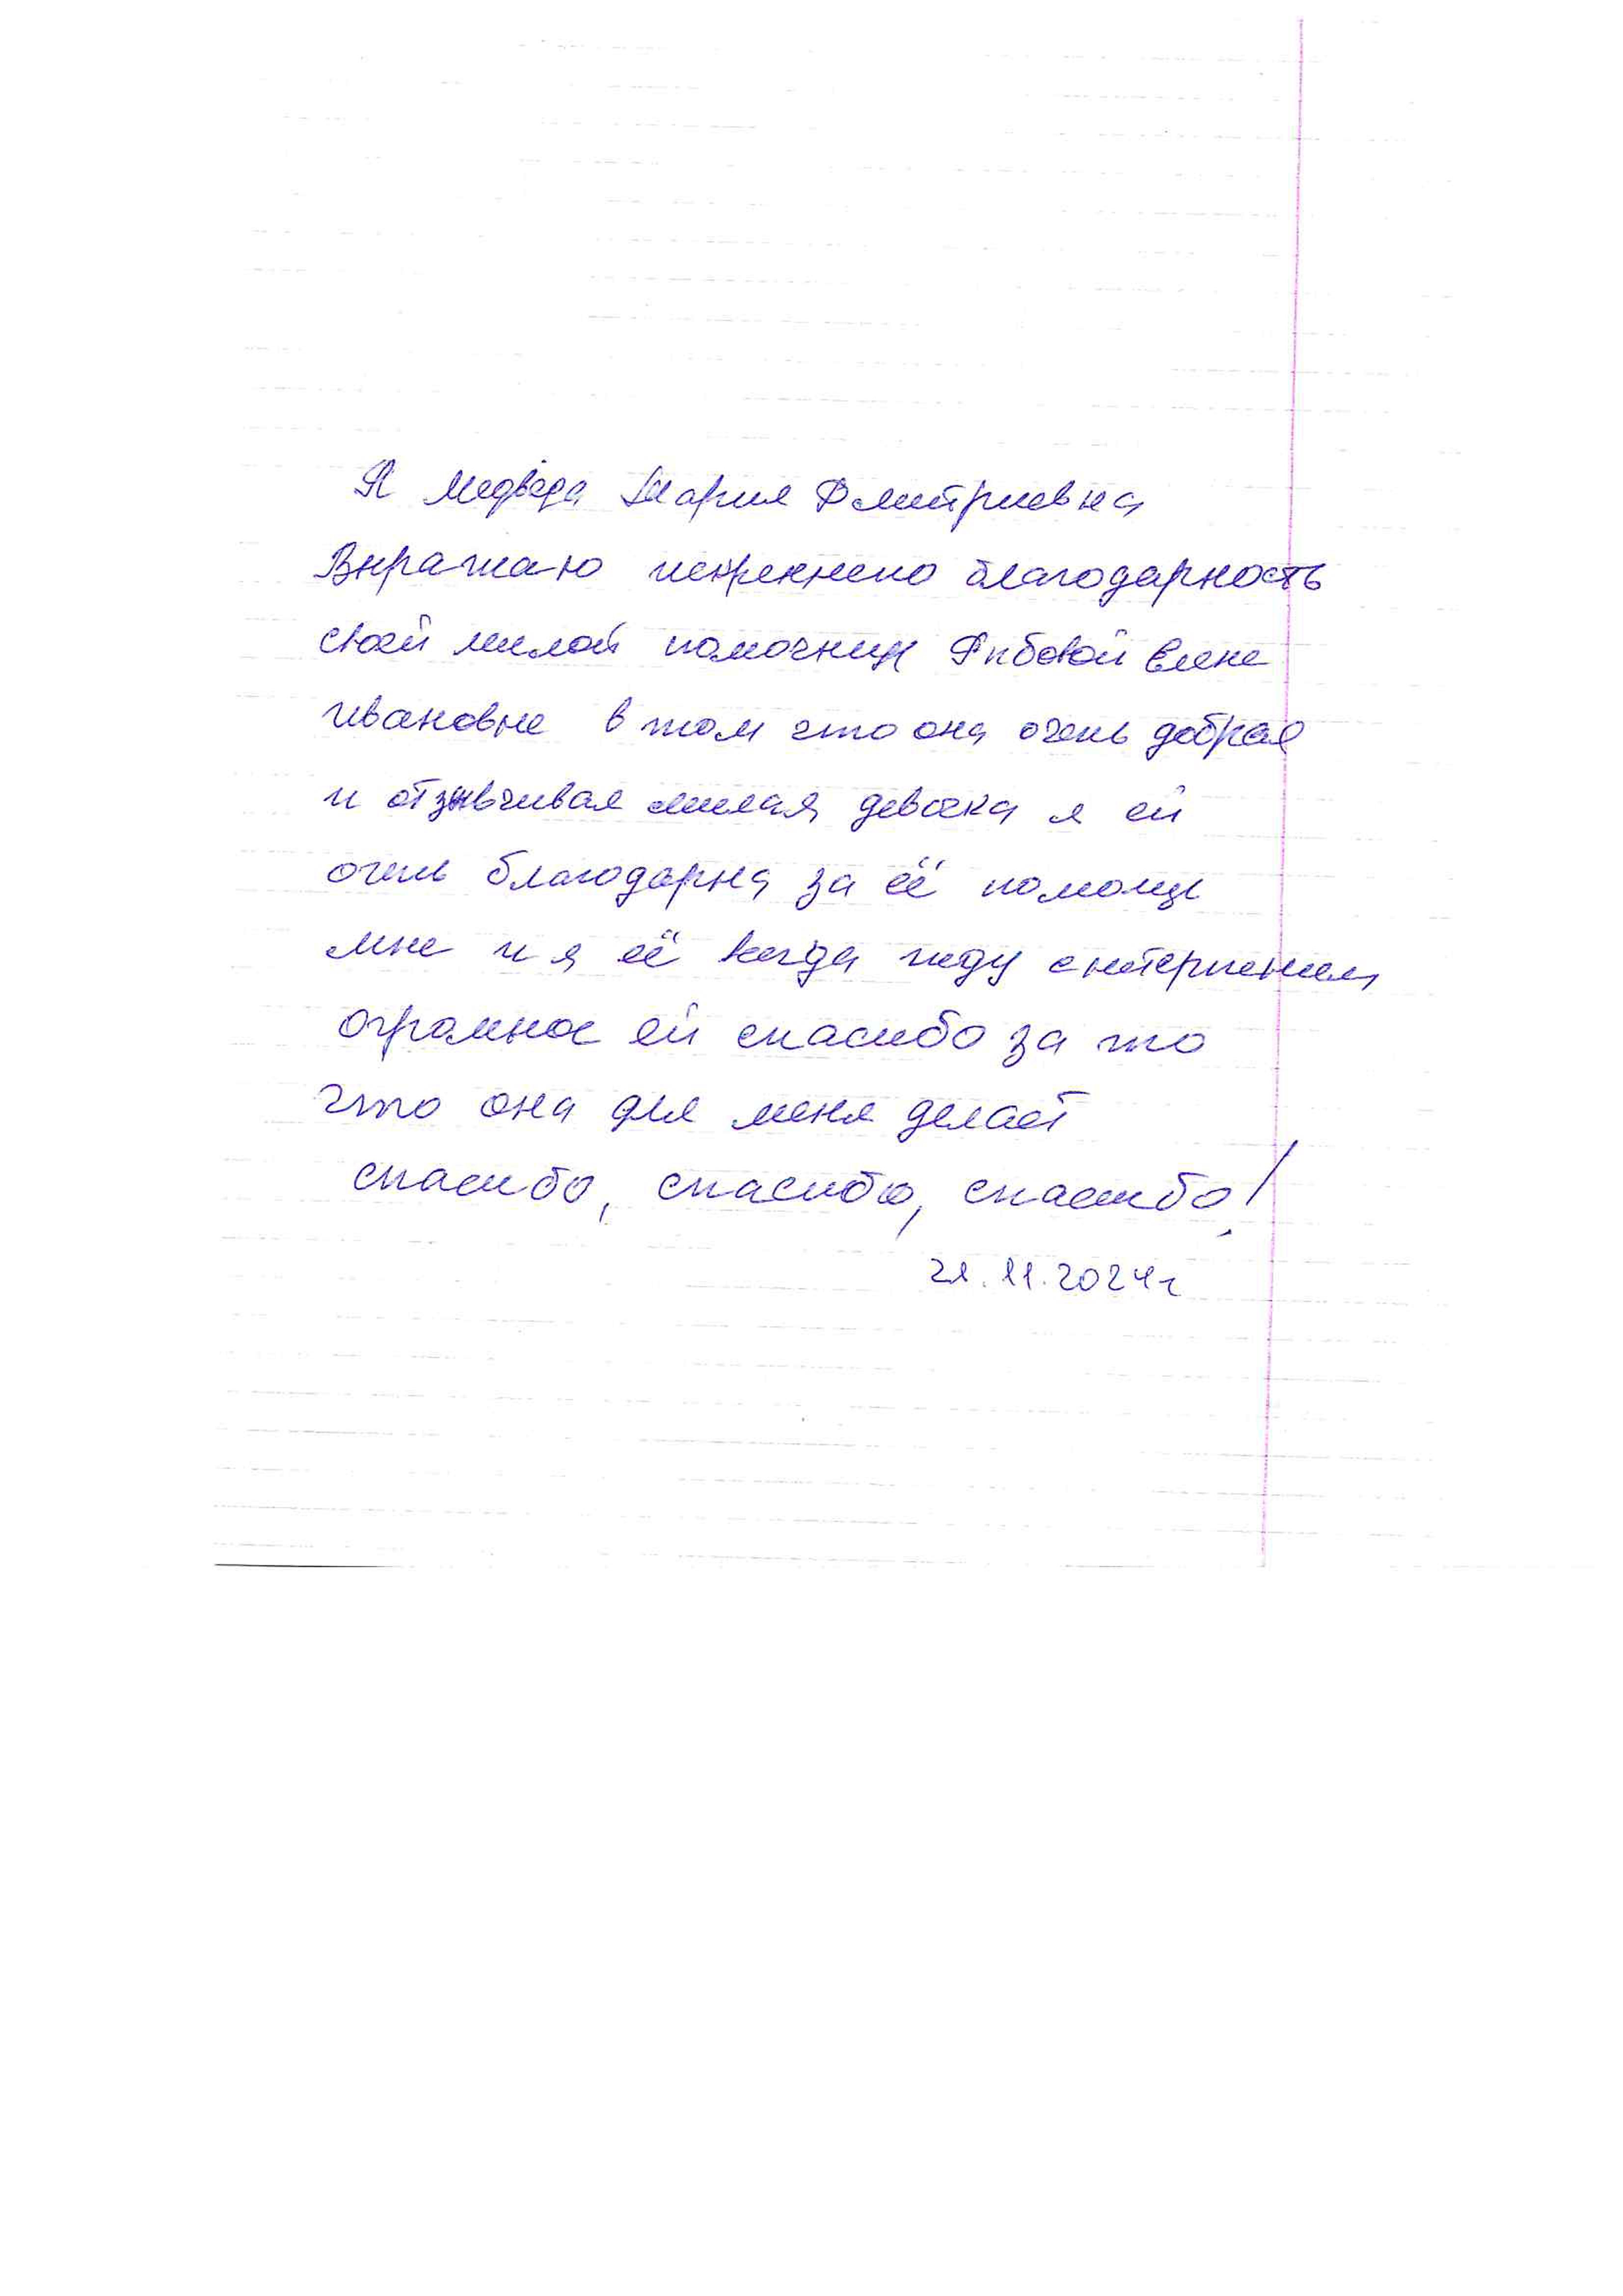 Я Медведа Мария Дмитриевна
Выражаю искренено благодарность
своей милой помочнице Елене
ивановне в том что она очень добрая
и отзывчивая милая девочка я ей
очень благодарна за её помощь
мне и я её всегда жду с нетерпением
огромное ей спасибо за то
что она для меня делает
спасибо, спасибо, спасибо!
21.11.2024г